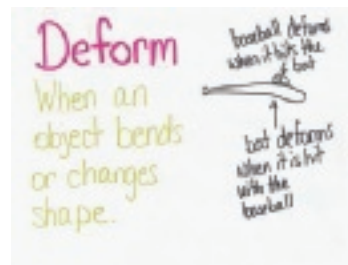 Deform
When an
object bends
or changes
shape.
baseball deforms
when it hits the
bat
bat deforms
when it is hit
with the
baseball